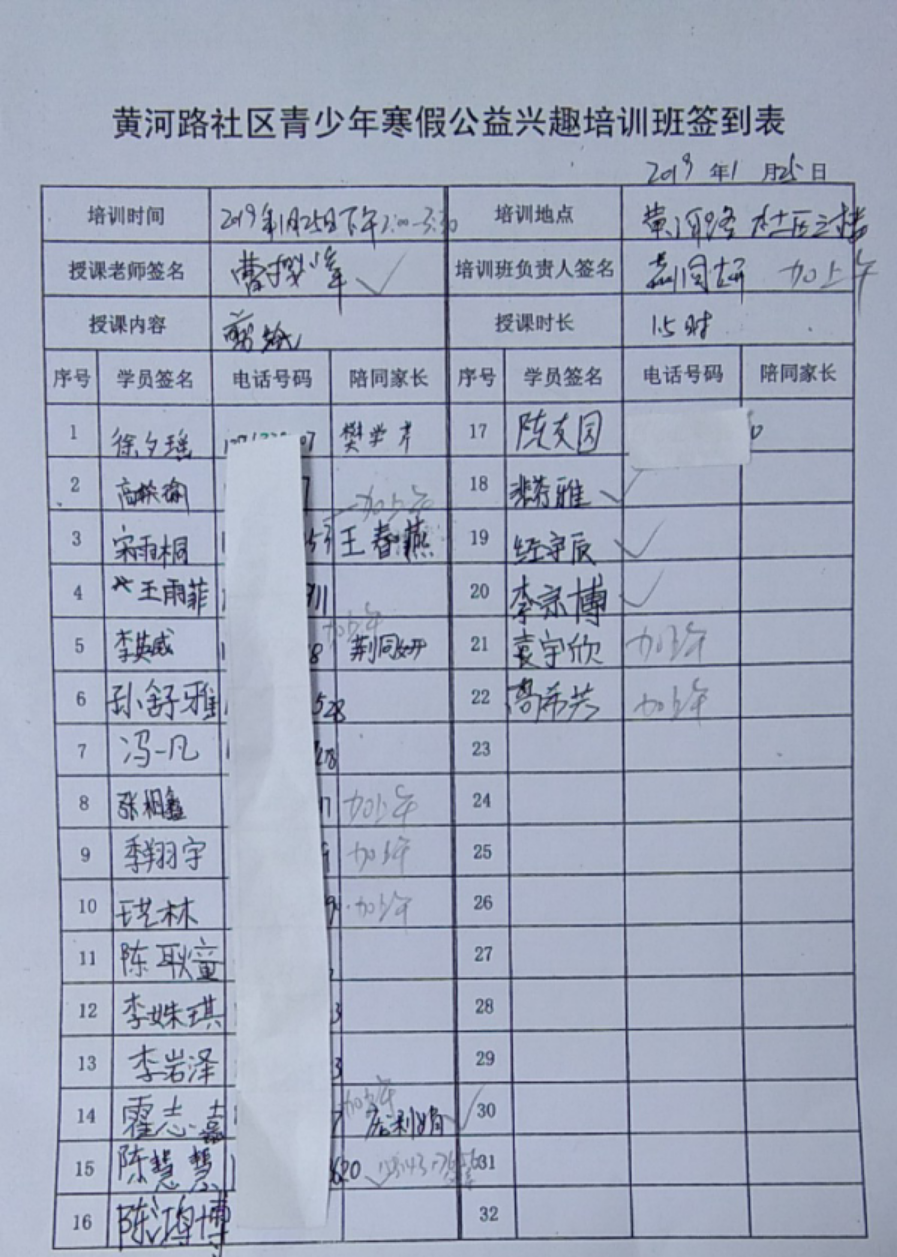 黄河路社区青少年寒假公益兴趣培训班签到表
2019年1月25日
培训时间 2019年1月25日下午2:00-3:30 培训地点 黄河路社区三楼
授课老师签名 培训班负责人签名 加上午
授课内容 剪纸 授课时长 1.5时
序号 学员签名 电话号码 陪同家长 序号 学员签名 电话号码 陪同家长
1 徐夕瑶 07 樊学才 17 陈友园
2 18
加上午
3 宋雨桐 王春燕 19 经宇辰
4 王雨菲 911 20 李宗博
加上午
5 李英威 8 荆同妍 21 袁宇欣 加上午
6 孙舒雅 528 22 高希芸 加上午
7 冯一凡 28 23
8 张栩鑫 加上午 24
9 季翔宇 加上午 25
10 王艺林 加上午 26
11 陈耿童 27
12 李姝琪 3 28
13 李岩泽 3 29
加上午
14 霍志嘉 30
15 陈慧慧 620 31
16 陈鸿博 32